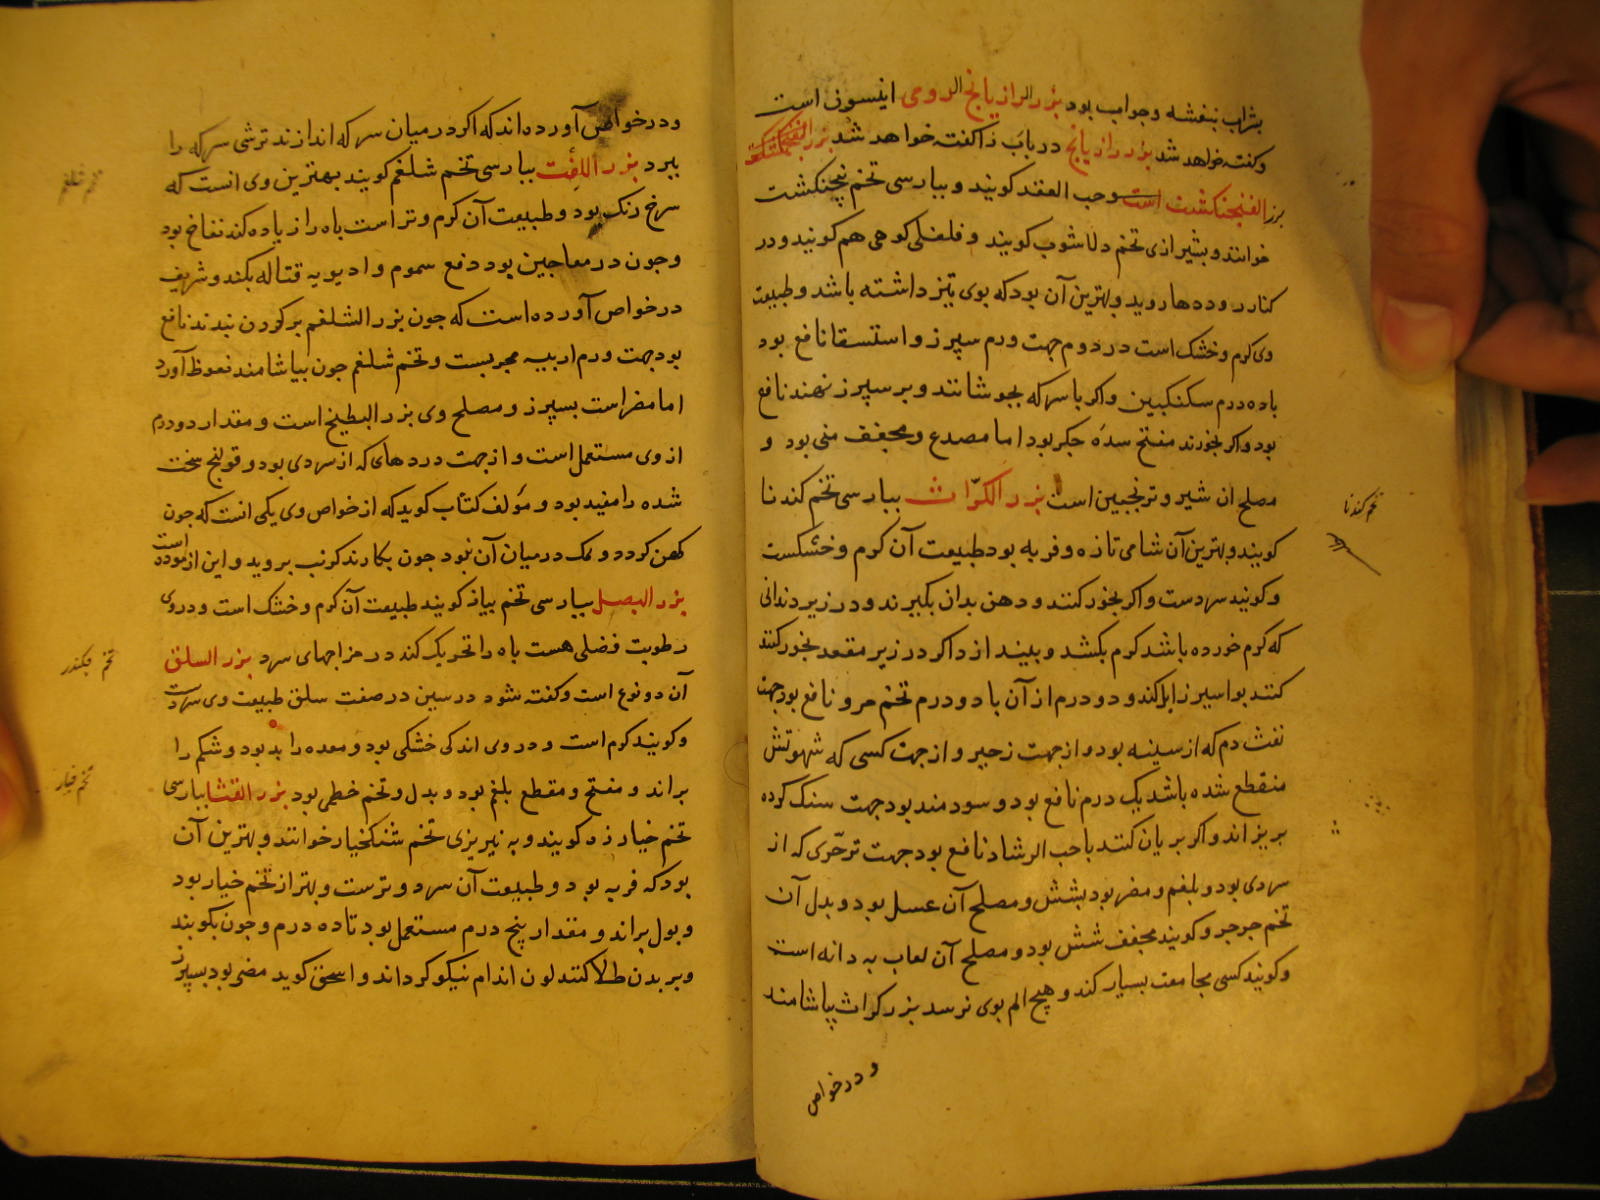 بشراب بنفشه وجواب بود بزر الرازیانج الرومی اینسون است
وکفته خواهد شد بزر رازیانج در باب را کفته خواهد شد بزر الفنجنکشت
بزر الفنجنکشت است وحب الفقد کویند و بپارسی تخم پنجنکشت
خوانند و بشیرازی تخم دلاشوب کویند و فلفل کوهی هم کویند و در
کنار رودها روید و بهترین آن بود که بوی تیز داشته باشد و طبیعت
وی کرم و خشک است در دوم جهت ورم سپرز و استسقا نافع بود
باده درم سکنکبین واکر با سرکه بجوشانند و بر سپرز نهند نافع
بود واکر بخورند مفتح سده جکر بود اما مصدع ومجفف منی بود و
مصلح ان شیر و ترنجبین است بزر الکرّاث بپارسی تخم کندنا
کویند وبهترین آن شامی تازه و فربه بود طبیعت آن کرم و خشکست
وکویند سردست واکر بخور کنند و دهن بدان بکیرند ودر زیر دندانی
که کرم خورده باشد کرم بکشد و بیندازد اکر در زیر مقعد بخور کنند
کنند بواسیر زایل کند و دو درم از آن با دو درم تخم مرو نافع بود جهت
نفث دم که از سینه بود و از جهت زحیر و از جهت کسی که شهوتش
منقطع شده باشد یک درم نافع بود و سودمند بود جهت سنک کرده
بریزاند واکر بریان کنند با حب الرشاد نافع بود جهت ترحّری که از
سردی بود و بلغم و مضر بود بشش ومصلح آن عسل بود و بدل آن
تخم جرجر وکویند مجفف شش بود و مصلح آن لعاب به دانه است
وکویند کسی مجامعت بسیار کند و هیچ الم بوی نرسد بزر کراث بیاشامند
و در خواص
تخم کندنا
ودر خواص آورده اند که اکر در میان سرکه اندازند ترشی سرکه را
ببرد بزر اللفت بپارسی تخم شلغم کویند بهترین وی انست که
سرخ رنک بود و طبیعت آن کرم و تر است باه را زیاده کند نفاخ بود
وجون در معاجین بود دفع سموم و ادویه قتاله بکند و شریف
در خواص آورده است که جون بزر الشلغم بر کردن بندند نافع
بود جهت ورم اربیه مجربست و تخم شلغم جون بیاشامند نعوظ آورد
اما مضر است بسپرز و مصلح وی بزر البطیخ است و مقدار دو درم
از وی مستعمل است و از جهت دردهای که از سردی بود و قولنج سخت
شده را مفید بود و مؤلف کتاب کوید که از خواص وی یکی انست که جون
کهن کردد و نمک در میان آن نبود جون بکارند کرنب بروید و این ازموده است
بزر البصل بپارسی تخم پیاز کویند طبیعت آن کرم و خشک است و در وی
رطوبت فضلی هست باه را تحریک کند در مزاجهای سرد بزر السلق
آن دو نوع است وکفته شود در سین در صفت سلق طبیعت وی سردست
وکویند کرم است و در وی اندکی خشکی بود و معده را بد بود و شکم را
براند و مفتح و مقطع بلغم بود و بدل و تخم خطمی بود بزر القثا بپارسی
تخم خیار زه کویند و به نیریزی تخم شنکخیار خوانند و بهترین آن
بود که فربه بود و طبیعت آن سرد و ترست و بهتر از تخم خیار بود
و بول براند و مقدار پنج درم مستعمل بود تا ده درم وجون بکوبند
وبر بدن طلا کنند لون اندام نیکو کرداند و اسحق کوید مضر بود بسپرز
تخم شلغم
تخم چکندر
تخم خیار